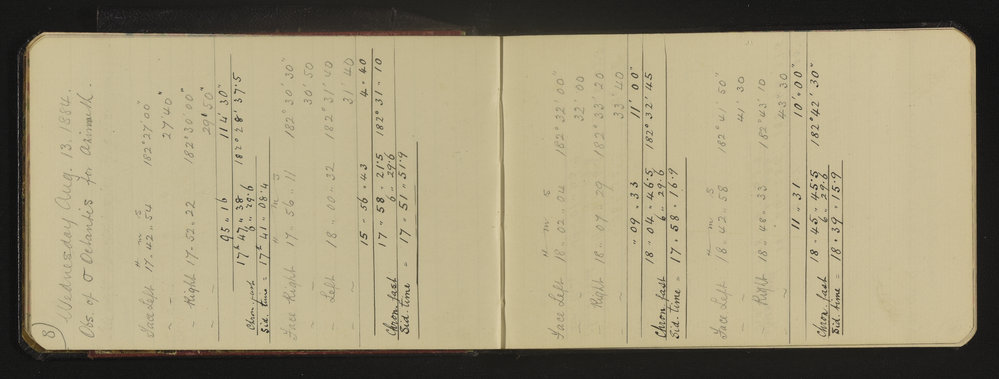 8
Wednesday Aug. 13. 1884.
Obs. of σ Octantis for Azimuth.
h m s
Face Left 17.. 42 .. 54 182° 27' 00"
~ ~ 27' 40"
~ Right 17.. 52.. 22 182° 30' 00"
~ ~ 29' 50"
95 .. 16 114' 30"
17h 47 .. 38 182° 28' 37.5
Chron fast 6 .. 29.6
Sid. time = 17h 41 .. 08.4
h m s
Face Right 17.. 56 .. 11 182° 30' 30"
~ ~ 30' 50
~ Left 18 .. 00 .. 32 182° 31' 40
~ ~ 31' 40
15 .. 56 .. 43 4 .. 40
17 .. 58 .. 21.5 182° 31 .. 10
Chron fast 6 .. 29.6
Sid. time = 17 .. 51 .. 51.9
h m s
Face Left 18 .. 02 .. 04 182° 32' 00"
~ ~ 32' 00
~ Right 18 .. 07 .. 29 182° 33' 20
~ ~ 33' 40
.. 09 .. 33 11' 0"
18 .. 04 .. 46.5 182° 32' 45
Chron fast 6 .. 29.6
Sid. time = 17 .. 58 .. 16.9
h m s
Face Left 18 .. 42 .. 58 182° 41' 50"
~ ~ 41' 30
~ Right 18 .. 48 .. 33 182° 43' 10
~ ~ 43' 30
11 .. 31 10' 00"
18 .. 45 .. 45.5 182° 42' 30"
Chron fast 6 .. 29.6
Sid. time = 18 .. 39 .. 15.9